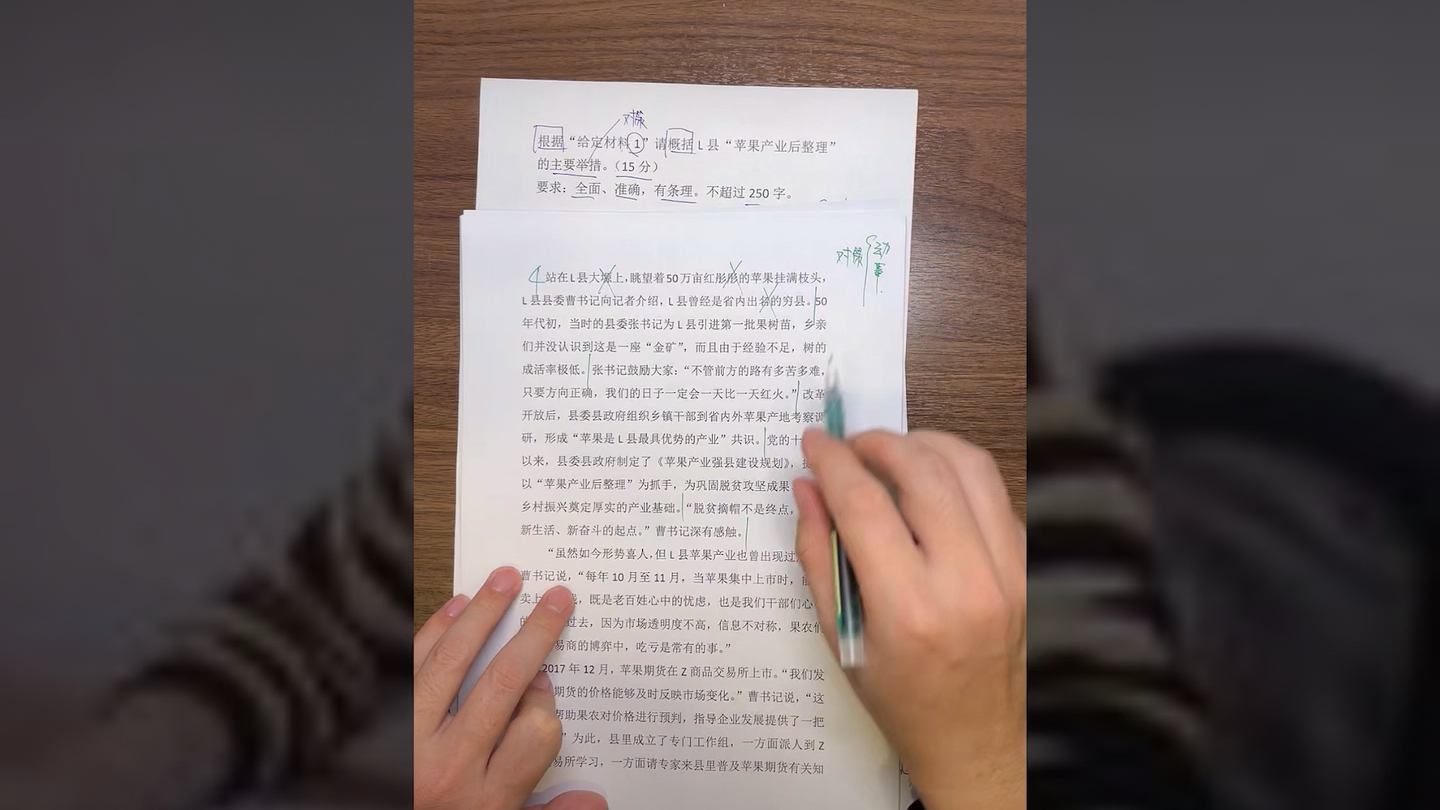 对象
根据“给定材料1”请概括L县“苹果产业后整理”
的主要举措。（15分）
要求：全面、准确，有条理。不超过250字。
对象 动
站在L县大塬上，眺望着50万亩红彤彤的苹果挂满枝头，
L县县委曹书记向记者介绍，L县曾经是省内出名的穷县。50
年代初，当时的县委张书记为L县引进第一批果树苗，乡亲
们并没认识到这是一座“金矿”，而且由于经验不足，树的
成活率极低。张书记鼓励大家：“不管前方的路有多苦多难，
只要方向正确，我们的日子一定会一天比一天红火。”改革
开放后，县委县政府组织乡镇干部到省内外苹果产地考察调
研，形成“苹果是L县最具优势的产业”共识。党的十
以来，县委县政府制定了《苹果产业强县建设规划》，
以“苹果产业后整理”为抓手，为巩固脱贫攻坚成果
乡村振兴奠定厚实的产业基础。“脱贫摘帽不是终点，
新生活、新奋斗的起点。”曹书记深有感触。
“虽然如今形势喜人，但L县苹果产业也曾出现过
曹书记说，“每年10月至11月，当苹果集中上市时，
卖上 ，既是老百姓心中的忧虑，也是我们干部们心
过去，因为市场透明度不高，信息不对称，果农们
易商的博弈中，吃亏是常有的事。”
2017年12月，苹果期货在Z商品交易所上市。“我们发
期货的价格能够及时反映市场变化。”曹书记说，“这
帮助果农对价格进行预判，指导企业发展提供了一把
”为此，县里成立了专门工作组，一方面派人到Z
易所学习，一方面请专家来县里普及苹果期货有关知